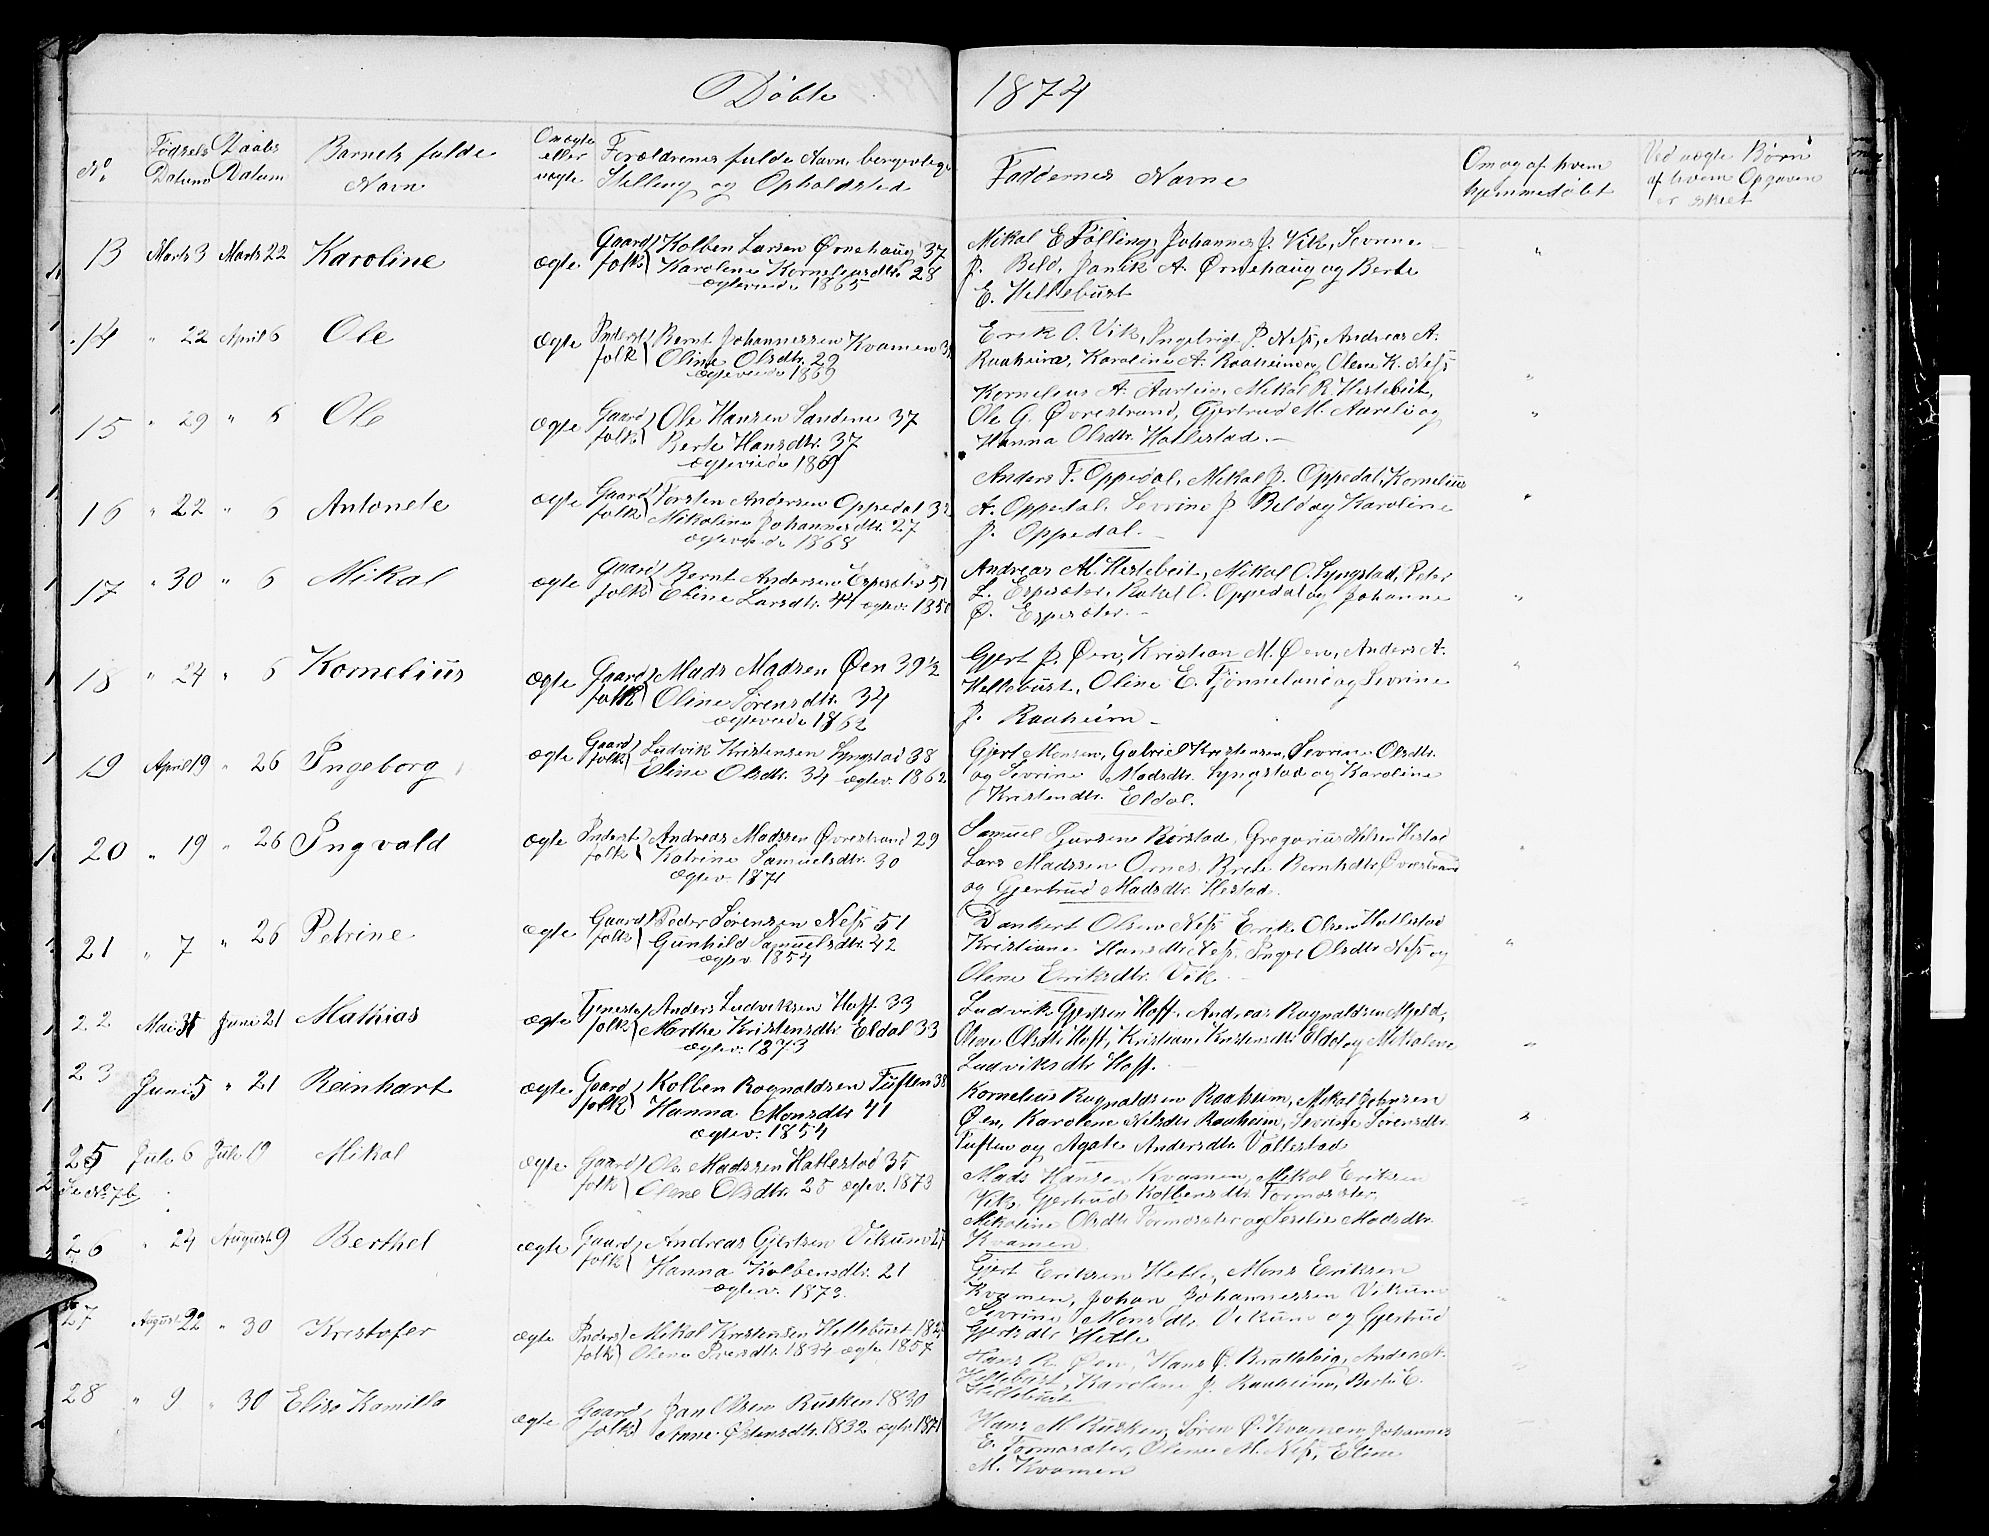 Døbte 1874
No.
Fødsels Datum
Daabs Datum
Barnets fulde Navn
Om ægte eller uægte
Forældrenes fulde Navn, borgerlige Stilling og Opholdsted
Faddernes Navne
Om og af hvem hjemmedøbt
Ved uægte Børn af hvem Opgaven er skeet
13 Marts 3 Marts 22 Karoline ægte Gaard folk Kolben Larsen Ørnehaug 37
Karolene Korneliusdtr. 28
ægteviede 1865
Mikal E. Følling, Johannes J. Vik, Severine
J. Beld, Janik A. Ørnehaug og Berte
E. Hellebust
14 " 22 April 6 Ole ægte Inderst folk Bernt Johannessen Kvamen
Oline Olsdtr. 29
ægteviede 1869
Erik O. Vik, Ingebrigt J. Ness, Andreas A.
Raaheim, Karoline A. Raaheim og Olene K. Ness
15 " 29 " 6 Ole ægte Gaard folk Ole Hansen Sandene 37
Berte Hansdtr. 37
ægteviede 1869
Kornelius A. Aarlei, Mikal R. Hestebeit,
Ole G. Øvrestrand, Gjertrud M. Aarlei og
Hanna Olsdtr. Hatlestad.
16 " 22 " 6 Antonete ægte Gaard folk Torsten Andersen Oppedal 32
Mikoline Johannesdtr. 27
ægteviede 1868
Anders T. Oppedal, Mikal J. Oppedal, Kornelius
A. Oppedal, Severine J. Beld og Karoline
J. Oppedal.
17 " 30 " 6 Mikal ægte Gaard folk Bernt Andersen Espesæter 51
Eline Larsdtr. 44 ægtev. 1850
Andreas M. Hestebeit, Mikal O. Lyngstad, Peter
L. Espesæter, Rakel O. Oppedal og Johanne
Ø. Espesæter.
18 " 24 " 6 Kornelius ægte Gaard folk Mads Madsen Øen 39½
Oline Sørensdtr. 34
ægteviede 1862
Gjert J. Øen, Kristian M. Øen, Anders A.
Hellebust, Oline E. Tjønneland og Severine
J. Raaheim
19 April 19 " 26 Ingeborg ægte Gaard folk Ludvik Kristensen Lyngstad 38
Eline Olsdtr. 34 ægtev. 1862
Gjert Monsen, Gabriel Kristensen, Sevrine Olsdtr.
og Sevrine Madsdtr. Lyngstad og Karoline
Kristendtr. Eldal.
20 " 19 " 26 Ingvald ægte Inderst folk Andreas Madssen Øvrestrand 29
Katrine Samuelsdtr. 30
ægtev. 1871
Samuel Børstad, Gregorius Nilsen Hestad
Lars Madssen Ornes, Brete Berntsdtr. Øvrestrand
og Gjertrud Madsdtr. Hestad.
21 " 7 " 26 Petrine ægte Gaard folk Peder Sørensen Ness 51
Gunhild Samuelsdtr. 42
ægtev. 1854
Dankert Olsen Ness, Erik Olsen Hatlestad
Kristiane Hansdtr. Ness, Inger Olsdtr. Ness og
Olene Eriksdtr. Vik
22 Mai 31 Juni 21 Mathias ægte Tjeneste folk Anders Ludviksen Hoff 33
Marthe Kristensdtr. Eldal 33
ægtev. 1873
Ludvik Gjertsen Hoff, Andreas Ragnaldsen Mjeld,
Oline Olsdtr. Hoff, Kristiane Kristensdtr. Eldal og Mikaline
Ludviksdtr. Hoff.
23 Juni 5 " 21 Reinhart ægte Gaard folk Kolben Ragnaldsen Tuften 38
Hanna Monsdtr. 41
ægtev. 1854
Kornelius Ragnaldsen Raaheim, Mikal Johnsen
Øen, Karolene Nilsdtr. Raaheim, Severine Sørensdtr.
Tuften og Agate Andersdtr. Vallestad
25 Juli 6 Juli 19 Mikal ægte Gaard folk Ole Madssen Hatlestad 35
Oline Olsdtr. 25 ægtev. 1873
Se No. 7b
Mads Hansen Kvamen, Mikal Eriksen
Vik, Gjertrud Kolbensdtr. Tormosæter,
Mikoline Olsdtr. Tormosæter og Madsdtr.
Kvamen
26 " 24 August 9 Berthel ægte Gaard folk Andreas Gjertsen Vikum
Hanna Kolbensdtr. 21
ægtev. 1873.
Gjert Eriksen Hetle, Mons Eriksen
Kvamen, Johan Johannessen Vikum
Sevrine Monsdtr. Vikum og Gjertrud
Gjertsdtr. Hetle
27 August 22 " 30 Kristofer ægte Inderst folk Mikal Kristensen Hellebust
Olene Persdtr. 1834 ægte 1857
Hans R. Øen, Hans J. Brattebeig, Anders A.
Hellebust, Karoline J. Raaheim, Berte E.
Hellebust
28 " 9 " 30 Elise Kamilla ægte Gaard folk Jan Olsen Rusken 1830
Anne Østensdtr. 1832 ægtv. 1871
Hans M. Rusken, Søren Ø. Kvamen, Johannes
E. Tormosæter, Olene M. Ness, Eline
M. Kvamen